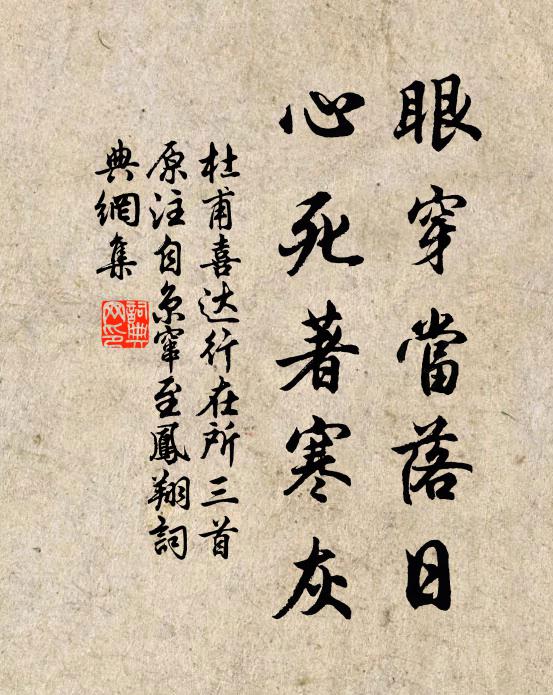 眼穿當落日
心死著寒灰
杜甫喜达行在所三首
原注自京窜至鳳翔詞
典網集
詞典
网印